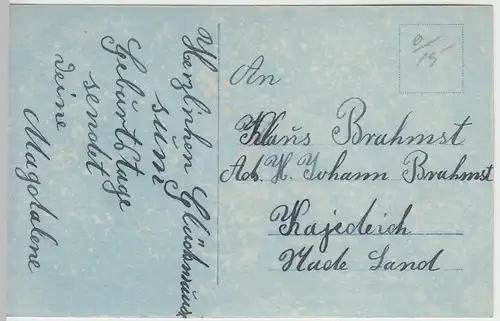 Herzlichen Glückwunsch
zum
Geburtstage
sendet
Deine
Magdalene
An
Klaus Brahmst
Adr. H. Johann Brahmst
Kajedeich
Hade Land